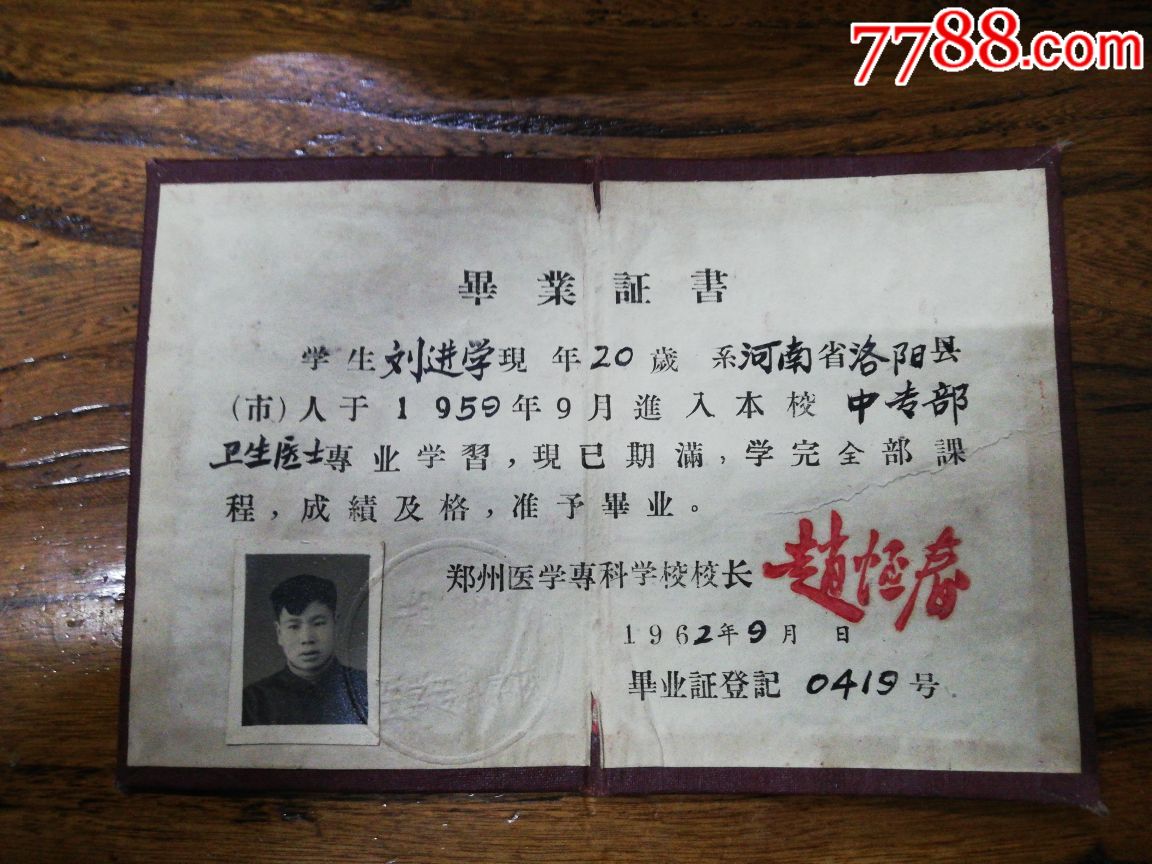 7788.com
畢業証書
学生刘进学現年20歲系河南省洛阳县
(市)人于1959年9月進入本校中专部
卫生医士専业学習，現已期滿，学完全部課
程，成績及格，准予畢业。
郑州医学専科学校校长 趙恒春
1962年9月 日
畢业証登記 0419号